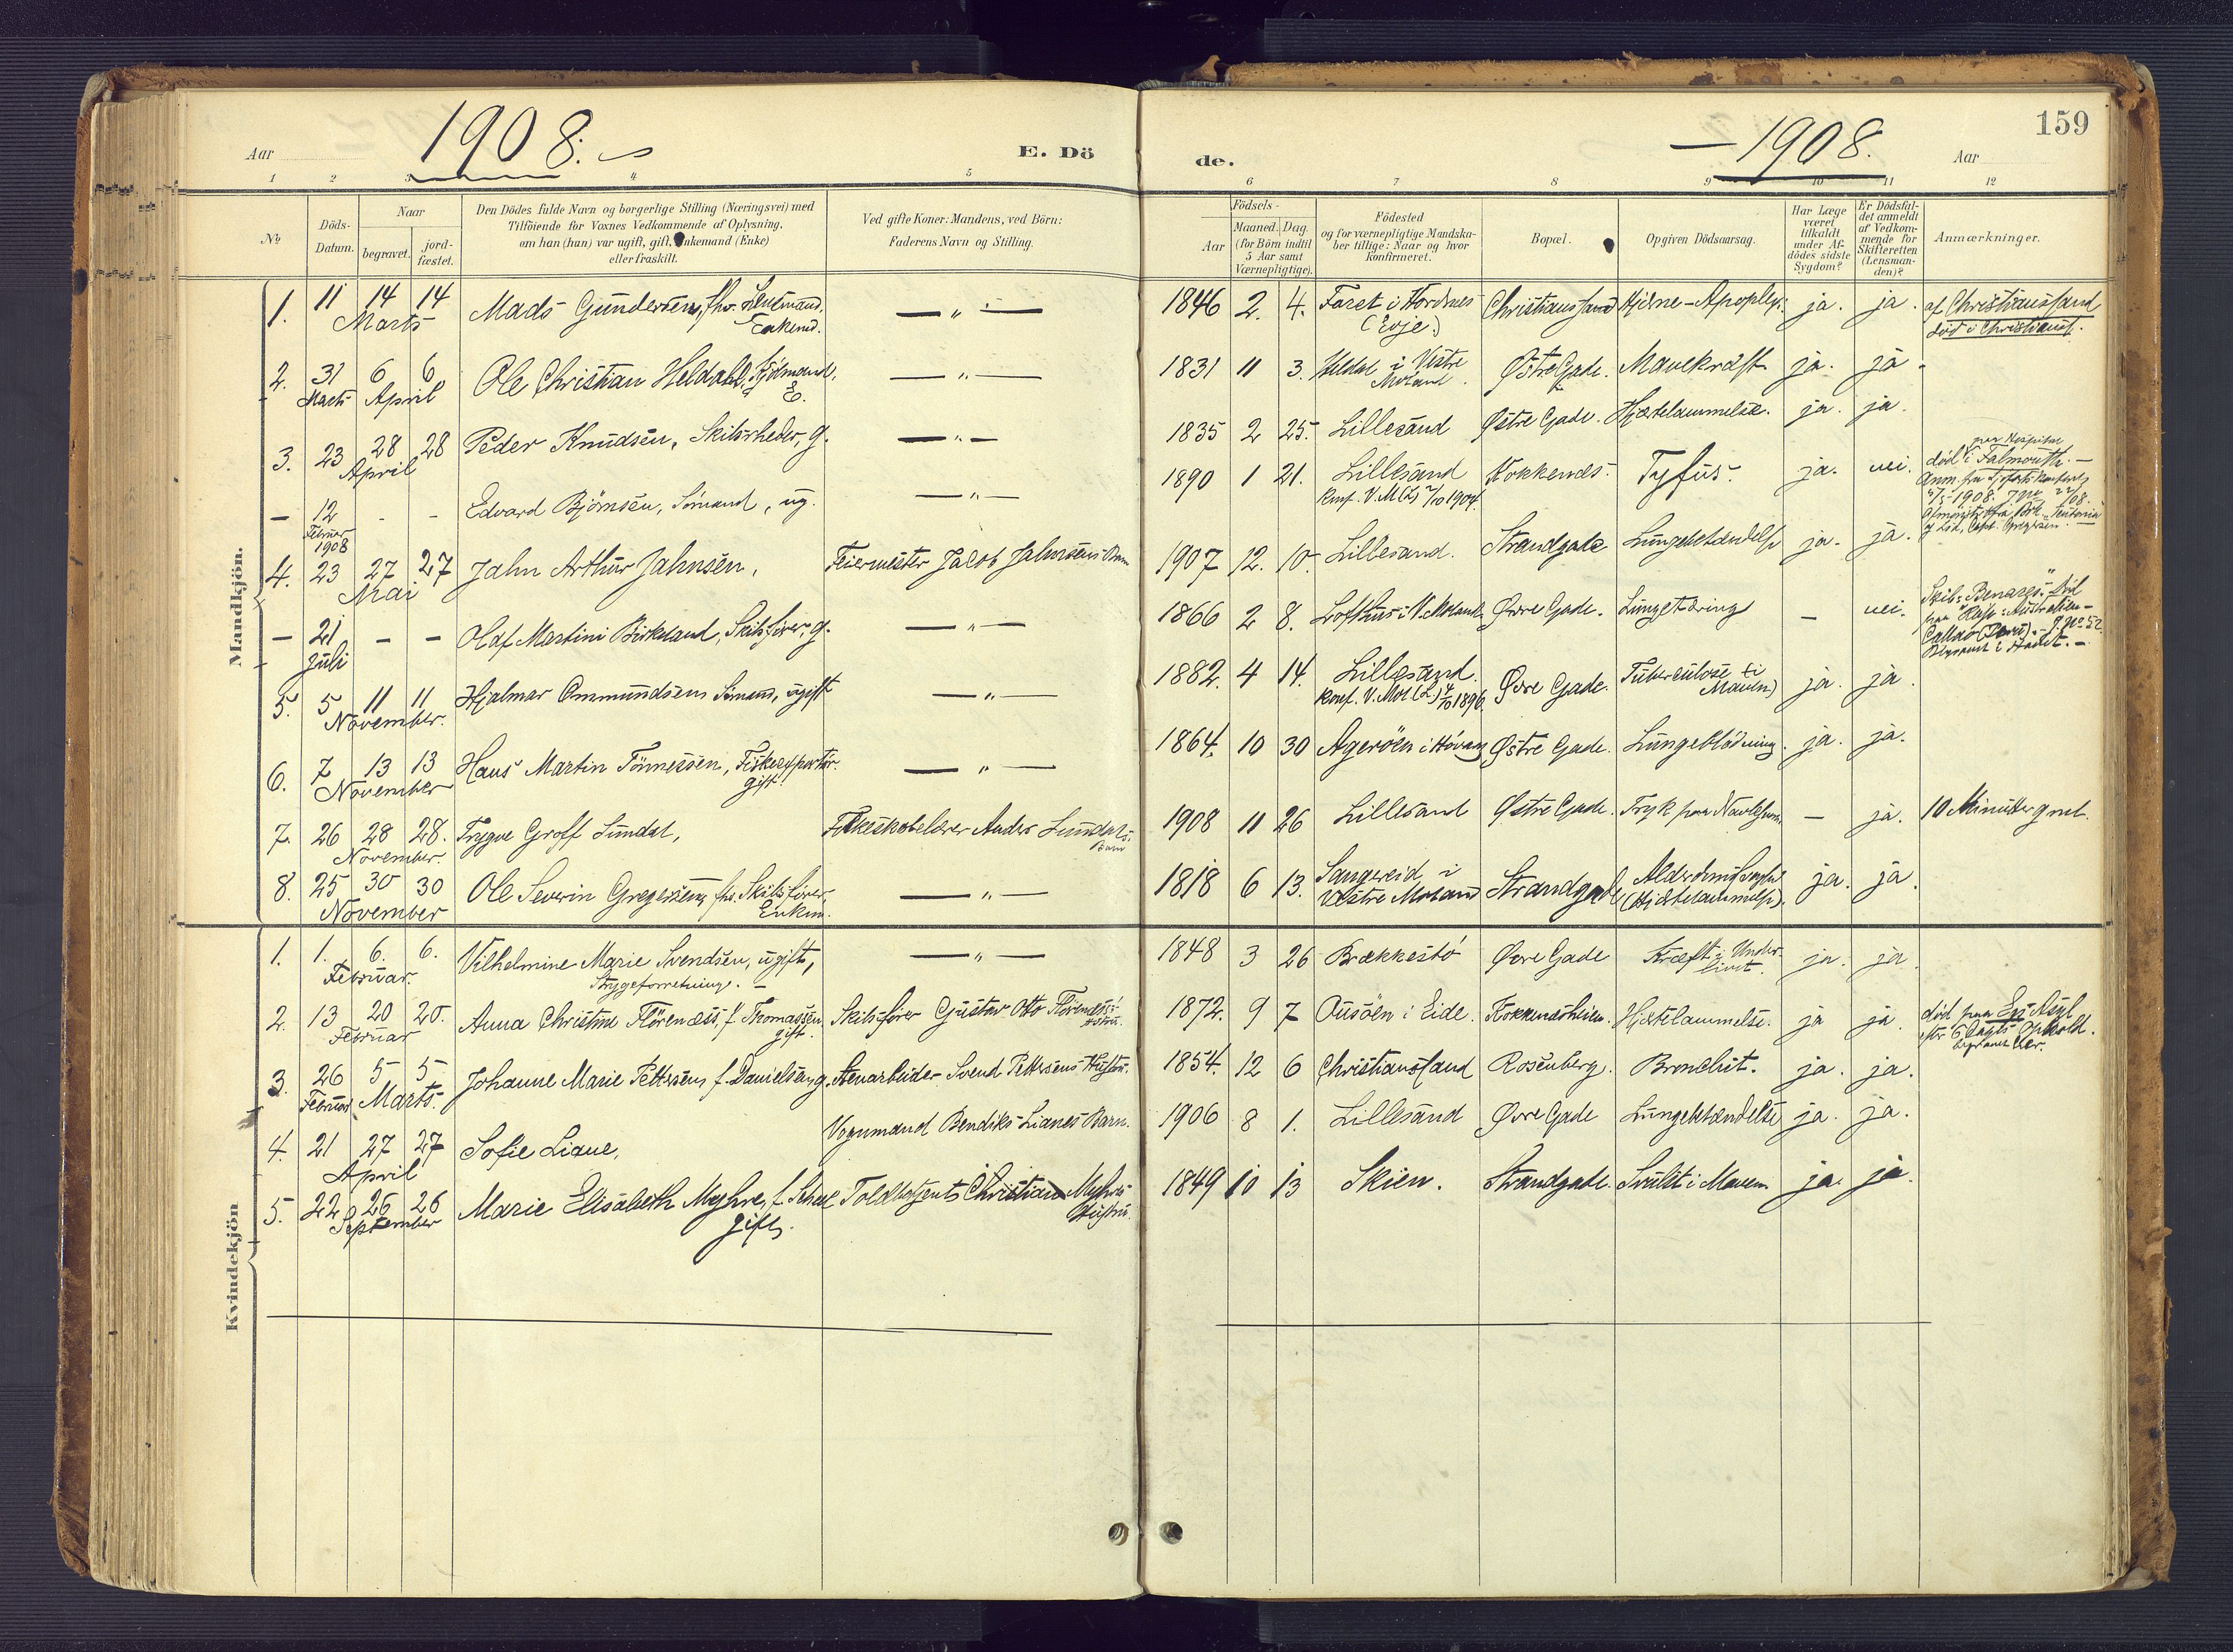 Aar 1908. E. Döde. — 1908. Aar 159
1 2 3 4 5 6 7 8 9 10 11 12
No
Döds-Datum.
Naar begravet. jordfæstet.
Den Dödes fulde Navn og borgerlige Stilling (Næringsvei) med
Tilföiende for Voxnes Vedkommende af Oplysning,
om han (hun) var ugift, gift, Enkemand (Enke)
eller fraskilt.
Ved gifte Koner: Mandens, ved Börn:
Faderens Navn og Stilling.
Födsels-
Aar
Maaned. Dag.
(for Börn indtil
5 Aar samt
Værnepligtige).
Födested
og for værnepligtige Mandska-
ber tillige: Naar og hvor
konfirmeret.
Bopæl.
Opgiven Dödsaarsag.
Har Læge
været
tilkaldt
under Af-
dödes sidste
Sygdom?
Er Dödsfal-
det anmeldt
af Vedkom-
mende for
Skifteretten
(Lensman-
den)?
Anmærkninger.
Mandkjön.
1. 11 14 14 Marts Mads Gundersen, fhv. Lensmand, Enkemd. — " — 1846 2. 4. Faret i Hordnes (Evje.) Christianssand Hjerne-Apoplexi. ja. ja. af Christianssand död i Christianss.
2. 31 Marts 6 6 April Ole Christian Heldahl, Sjömand, E. — " — 1831 11 3. Heldal i Vestre Moland. Østre Gade. Mavekræft ja. ja.
3. 23 28 28 April Peder Knudsen, Skibsrheder, g. — " — 1835 2 25. Lillesand Østre Gade. Hjertelammelse. ja. ja.
— 12 Februar 1908 - - Edvard Björnsen, Sömand, ug. — " — 1890 1 21. Lillesand Konf. V.M.(L) 2/10 1904. Kokkenæs. Tyfus. ja. nei. død paa Hospital i Falmouth. —
4. 23 27 27 Mai Jahn Arthur Jahnsen, Feiermester Jacob Jahnsens Barn 1907 12. 10. Lillesand. Strandgade Lungebetændelse ja. ja.
— 21 Juli - - Olaf Martini Birkeland, Skibsförer, g. — " — 1866 2 8. Lofthus i V. Moland Øvre Gade. Lungetæring — nei. Skib: "Benares". död paa Reise: Australien- Callao (Peru).
5. 5 11 11 November. Hjalmar Ommundsen Sömand, ugift — " — 1882. 4 14. Lillesand. Konf. V. Mol (L) 4/10 1896. Øvre Gade. Tuberculose (i Maven) ja. ja.
6. 7 13 13 November Hans Martin Tönnessen, Fiskeexportör. gift. — " — 1864. 10 30 Ageröen i Hövaag Østre Gade. Lungeblödning. ja. ja.
7. 26 28 28. November. Trygve Groff Sundal, Folkeskolelærer Anders Sundals Barn 1908 11 26 Lillesand Østre Gade. Tryk paa Navlesnor. — ja. 10 Minutter gml.
8. 25 30 30 November Ole Severin Gregersen, fhv. Skibsförer, Enkm. — " — 1818 6 13. Sangereid i Vestre Moland Strandgade Alderdomssvaghed (Hjertelammelse). ja. ja.
Kvindekjön
1. 1. 6. 6. Februar. Vilhelmine Marie Svendsen, ugift, Strygeforretning. — — " — 1848 3 26 Brækkestö Øvre Gade Kræft i Underlivet. ja. ja.
2. 13 20 20. Februar Anna Christine Flörenæss, f. Thomassen gift. Skibsförer Gustav Otto Flörenæss's Hstru. 1872. 9 7 Ausöen i Eide. Kokkenæsheien. Hjertelammelse. ja ja. död paa Eg Asyl efter 6 Dages Ophold. begravet her.
3. 26 Februar 5 5 Marts. Johanne Marie Pettersen, f. Danielsen, g. Stenarbeider Svend Pettersens Hustru. 1854. 12 6 Christianssand Rosenberg. Bronchit. ja. ja.
4. 21 27 27 April Sofie Liane, Vognmand Bendiks Lianes Barn. 1906 8 1. Lillesand Øvre Gade Lungebetændelse ja. ja.
5. 22 26 26 September Marie Elisabeth Myhre, f. Scheel gift. Toldbetjent Christian Myhres Hustru. 1849 10 13 Skien. Strandgade. Svulst i Maven ja. ja.